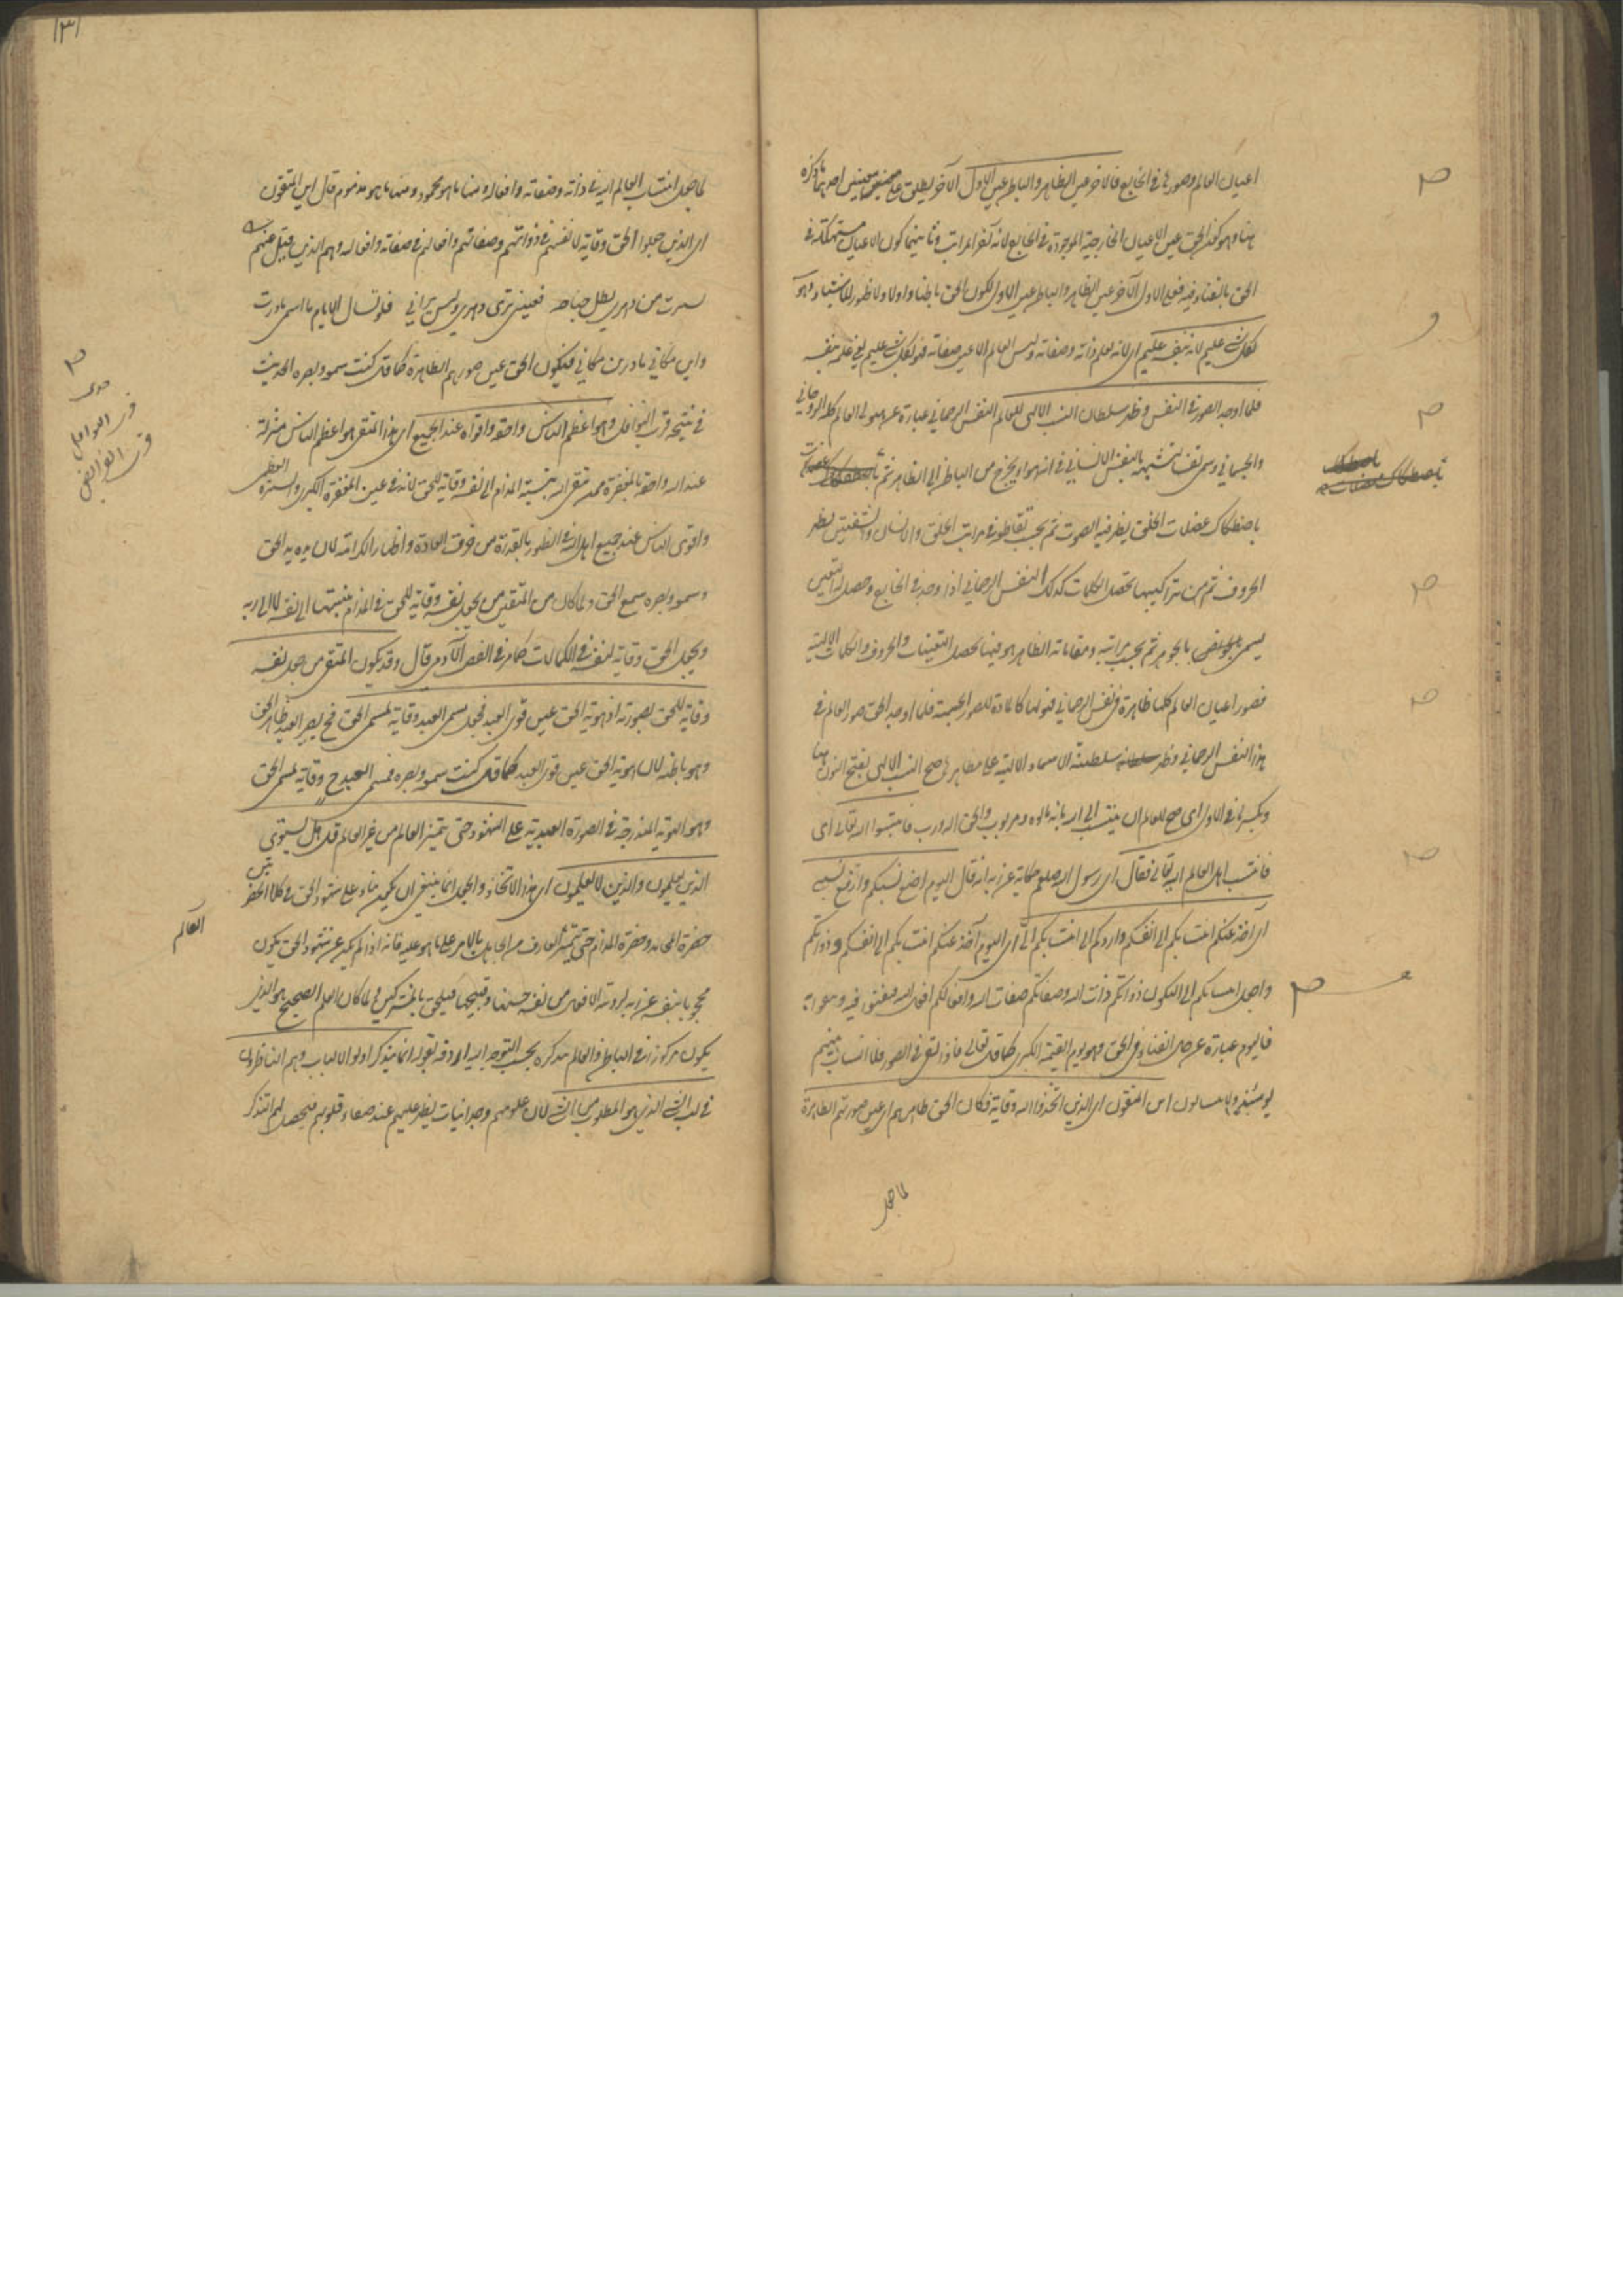 اعيان العالم وصورها في الخارج فالآخر عين الظاهر والباطن عين الاول الآخر يطلق على معنيين احدهما ما ذكره
هنا وهو كون الحق عين الاعيان الخارجية الموجودة في الخارج لانه آخر المراتب وثانيهما كون الاعيان مستهلكة في
الحق بالفناء فيه فعلى الاول الآخر عين الظاهر والباطن عين الاول لكون الحق باطنا واولا ولا ظهور للاشياء وهو
بكل شئ عليم لانه بنفسه عليم اي لانه يعلم ذاته وصفاته وليس العالم الا عين صفاته فهو بكل شئ عليم في علمه بنفسه
فلما اوجد الصور في النفس وظهر سلطان النسب الالهي للعالم النفس الرحماني عبارة عن هيولى العالم كله الروحاني
والجسماني وسمي نفسا تشبيها بالنفس الانساني في انه هواء يخرج من الباطن الى الظاهر ثم
باصطكاك عضلات الحلق يظهر فيه الصوت ثم بحسب تقاطعه في مراتب الحلق والاسنان والشفتين يظهر
الحروف ثم من تراكيبها تحصل الكلمات كذلك النفس الرحماني اذا وجد في الخارج وحصل له التعين
يسمى بالجوهر ثم بحسب مراتبه ومقاماته الظاهر هو فيها تحصل التعينات والحروف والكلمات الالهية
فصور اعيان العالم كلها ظاهرة في النفس الرحماني فهو لها كالمادة للصور الجسمية فلما اوجد الحق صور العالم في
هذا النفس الرحماني وظهر سلطنة الاسماء الالهية على مظاهره صح النسب الالهي بفتح النون هنا
وبكسرها في الاول اي صح للعالم ان ينتسب الى الله بانه مألوه ومربوب والحق اله ورب فانتسبوا اليه تعالى اي
فانتسب اهل العالم اليه تعالى فقال اي رسول الله صلعم حكاية عن ربه انه قال اليوم اضع نسبكم وارفع نسبي
اي آخذ عنكم انتسابكم الى انفسكم واردكم الى انتسابكم الي اي اليوم آخذ عنكم انتسابكم الى انفسكم وذواتكم
واجعل انتسابكم الي لتكون ذواتكم ذات الله وصفاتكم صفات الله وافعالكم افعال الله
فاليوم عبارة عن حال الفناء في الحق وهو يوم القيمة الكبرى كما قال تعالى فاذا نفخ في الصور فلا انساب بينهم
يومئذ ولا يتسائلون اين المتقون اي الذين اتخذوا الله وقاية فكان الحق ظاهرهم اي عين صورتهم الظاهرة
لاجل
باصطكاك
١٣١
لاجل انتساب العالم اليه في ذاته وصفاته وافعاله ومنها ما هو محمود ومنها ما هو مذموم قال اين المتقون
اي الذين جعلوا الحق وقاية لانفسهم في ذواتهم وصفاتهم وافعالهم في صفاته وافعاله وهم الذين قيل عنهم
تسترت من دهري بظل جناحه فعيني ترى دهري وليس يراني فلو تسال الايام ما اسمي ما درت
واين مكاني ما درين مكاني فيكون الحق عين صورهم الظاهرة كما قال كنت سمعه وبصره الحديث
في نتيجة قرب النوافل وهو اعظم الناس واحقه واقواه عند الجميع اي هذا المتقي هو اعظم الناس منزلة
عند الله واحق بالمغفرة ممن يتقي الله بنسبة المذام الى نفسه وقاية للحق لانه في عين المغفرة الكبرى والسترة العظمى
واقوى الناس عند جميع اهل الله في الظهور بالقدرة من خرق العادة واظهار الكرامة لان يده يد الحق
وسمعه وبصره سمع الحق ولما كان من المتقين من يجعل نفسه وقاية للحق في المذام بنسبتها الى نفسه لا الى ربه
ويجعل الحق وقاية لنفسه في الكمالات كما مر في الفص الآدمي قال وقد يكون المتقي من جعل نفسه
وقاية للحق بصورته اذ هوية الحق عين قوى العبد فجعل مسمى العبد وقاية لمسمى الحق فح يصير العبد ظاهر الحق
وهو باطنه لان هوية الحق عين قوى العبد كما قال كنت سمعه وبصره فمسمى العبد ح وقاية لمسمى الحق
وهو الهوية المندرجة في الصورة العبدية على الشهود حتى يتميز العالم من غير العالم قل هل يستوي
الذين يعلمون والذين لا يعلمون اي هذا الاتخاذ والجعل انما ينبغي ان يكون بناء على شهود الحق في كلا الحضرتين
حضرة المحامد وحضرة المذام حتى يتميز العارف من الجاهل بالامر على ما هو عليه فانه اذا لم يكن عن شهود الحق يكون
محجوبا بنفسه عن ربه لرؤيته الافعال من نفسه حسنها وقبيحها فيلحق بالمشركين ولما كان العلم الصحيح هو الذي
يكون مركوزا في الباطن والعالم يتذكره بحسب التوجه اليه اردفه بقوله انما يتذكر اولو الالباب وهم الناظرون
في لب الشئ الذي هو المطلوب من الشئ لان علومهم وجدانيات يظهر عليهم عند صفاء قلوبهم فيحصل لهم التذكر
العالم
قرب النوافل
قرب الفرائض